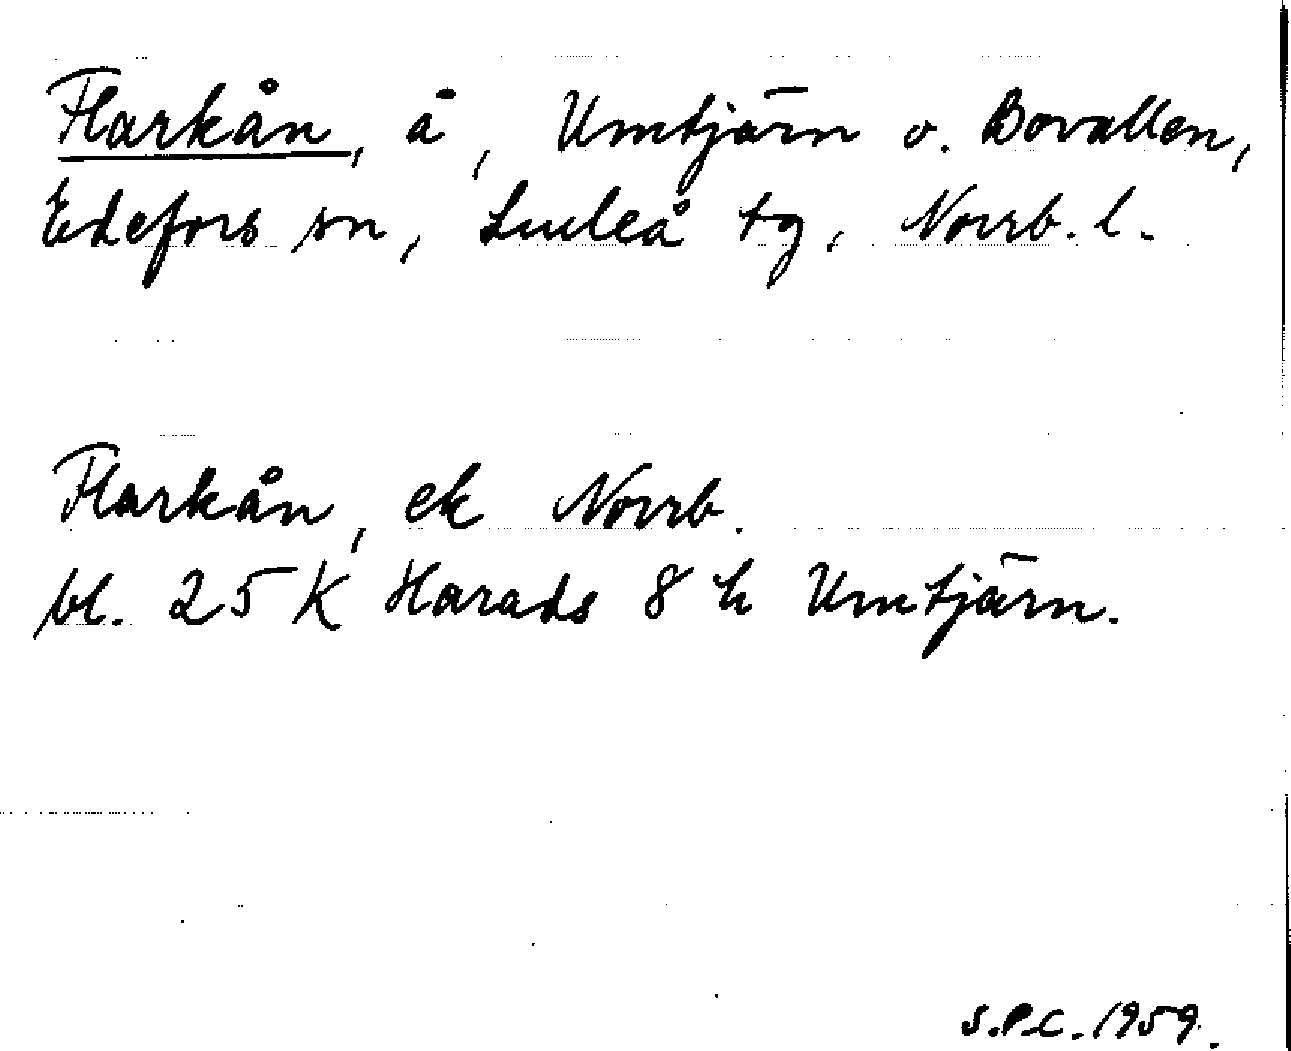 Flarkån, å, Umtjärn o. Bovallen,
Edefors sn, Luleå tg, Norrb. l.
Flarkån, ek Norrb.
bl. 25 K Harads 8 h Umtjärn.
S.P.C. 1959.